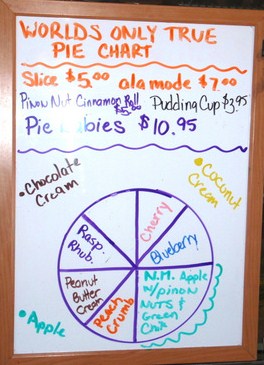 WORLDS ONLY TRUE
PIE CHART
Slice $5.00 ala mode $7.00
Pinon Nut Cinnamon Roll $5.00
Pudding Cup $3.95
Pie Babies $10.95
• Chocolate
Cream
• Coconut
Cream
Cherry
Blueberry
Rasp.
Rhub.
Peanut
Butter
Cream
Peach
Crumb
N.M. Apple
w/pinon
NUTS &
Green
Chili
• Apple